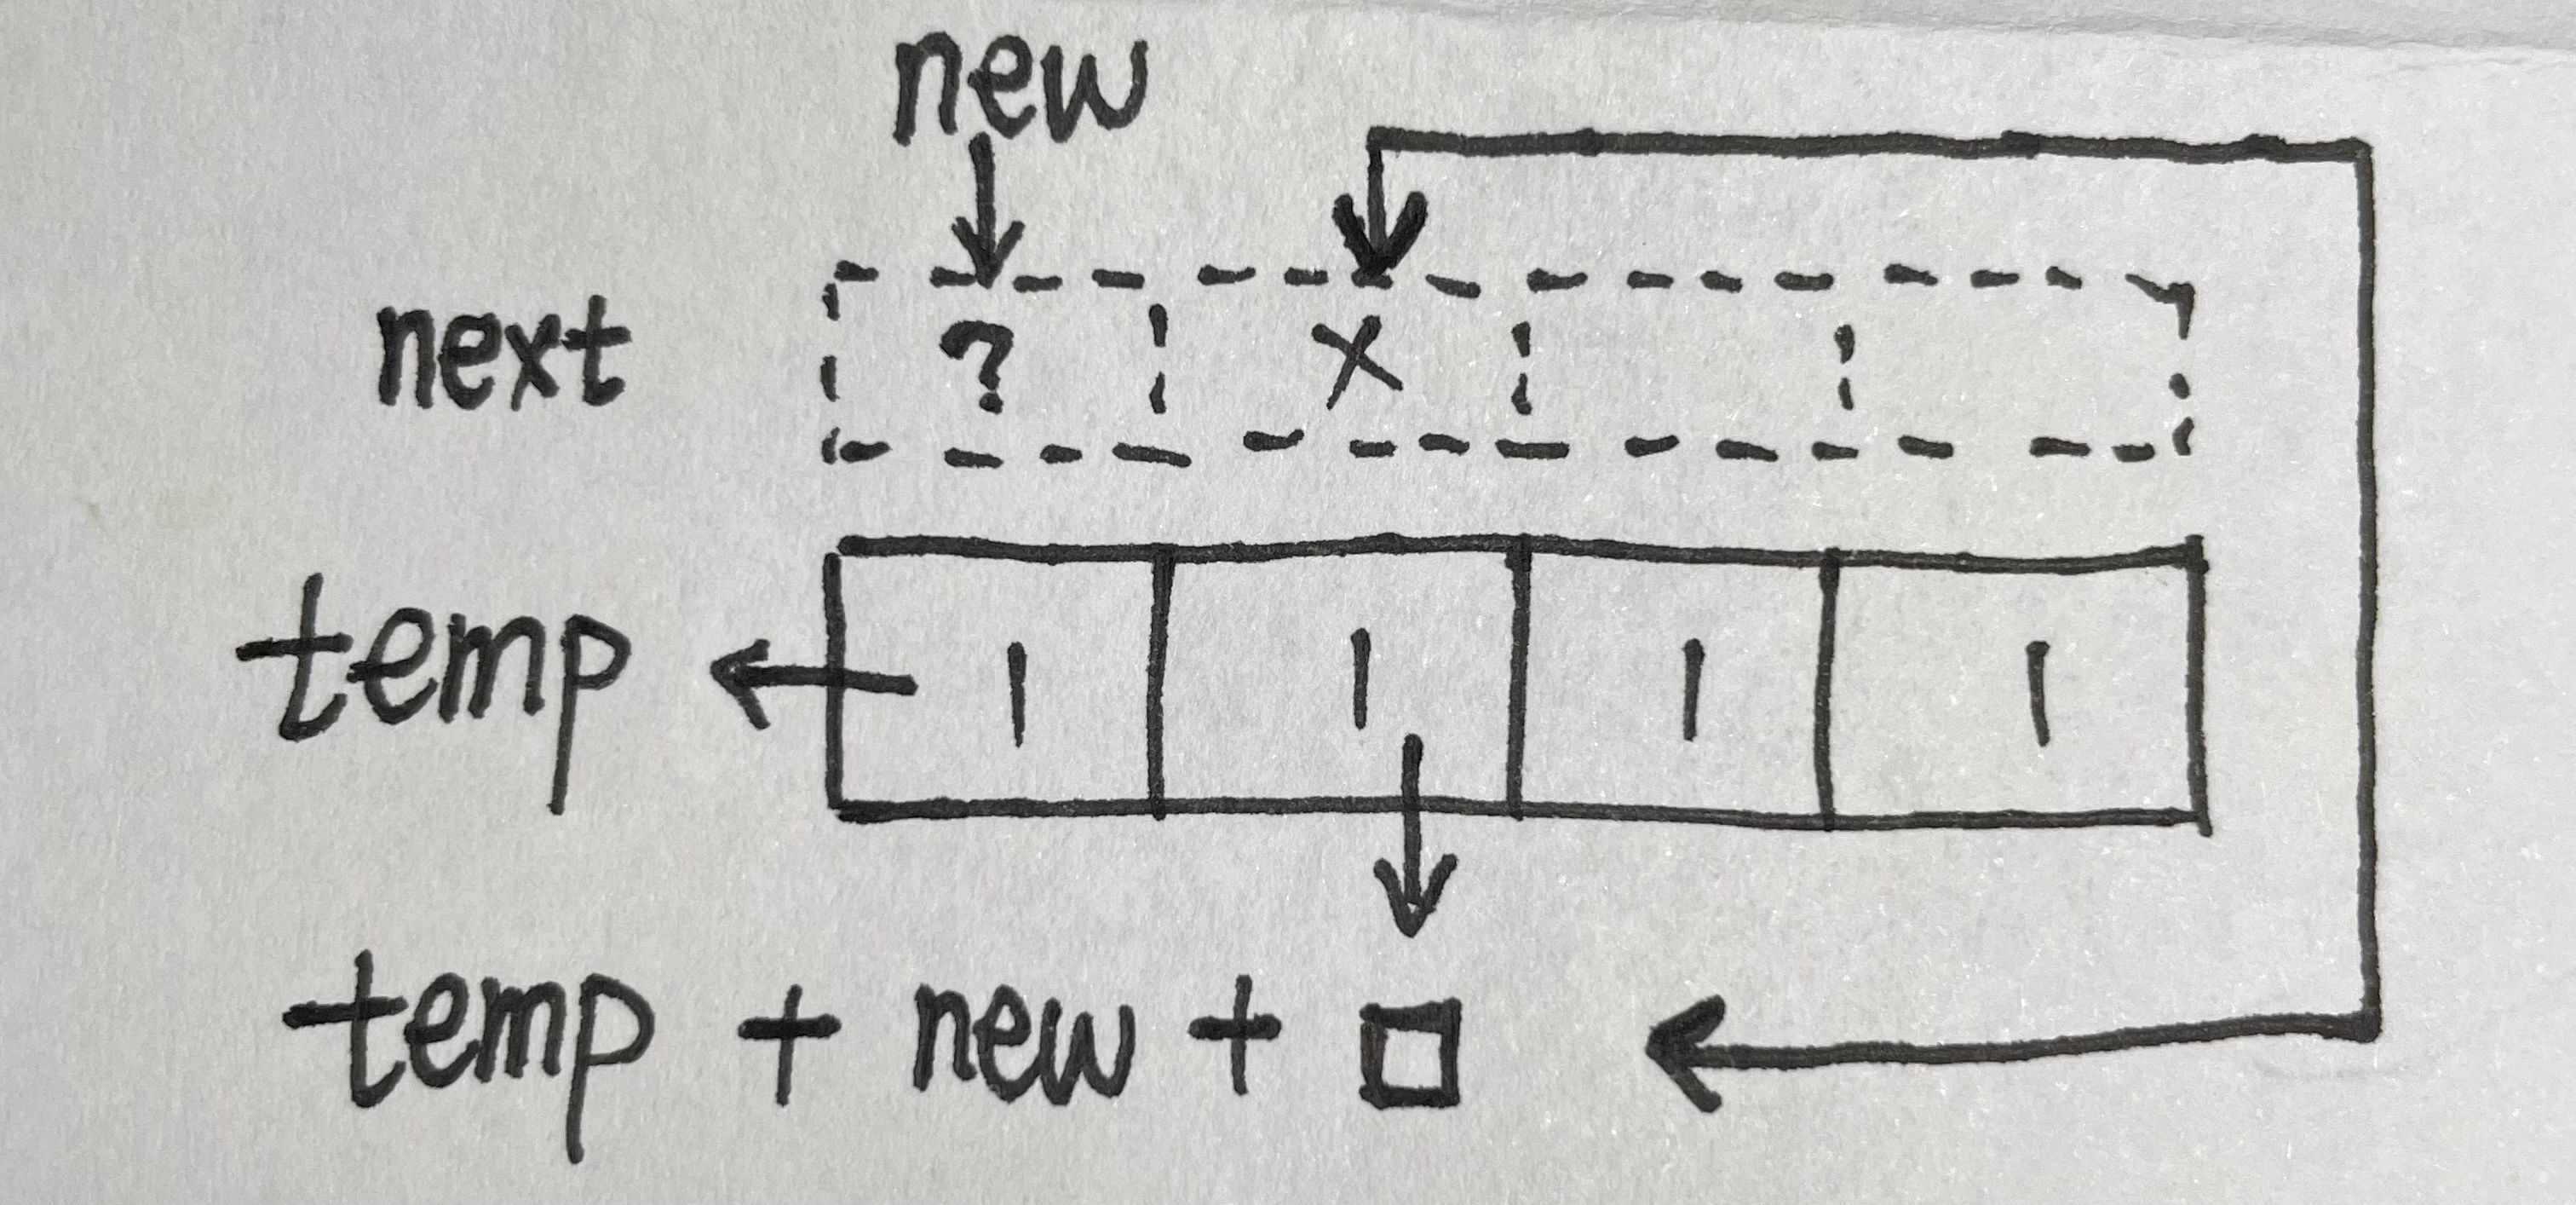 new
next ? X
temp 1 1 1 1
temp + new + □